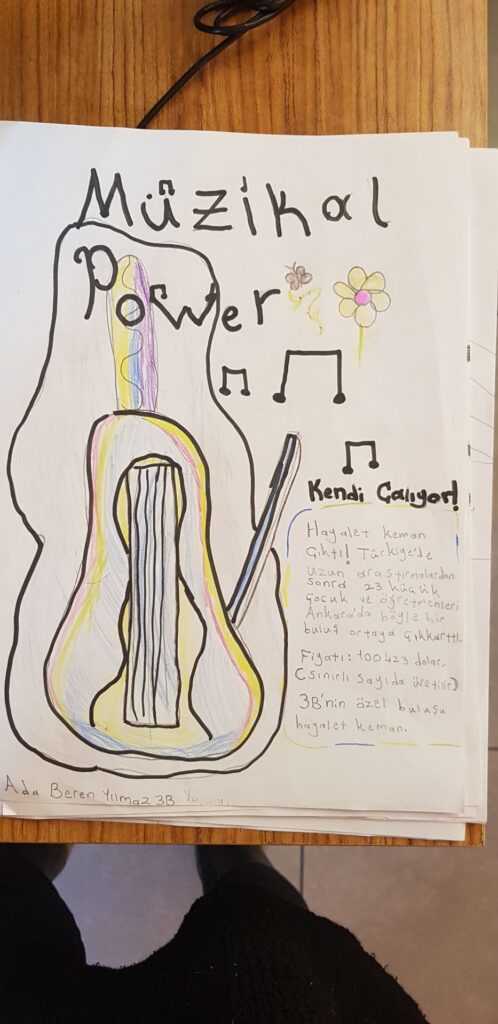 Müzikal
Power
Kendi Çalıyor!
Hayalet keman
çıktı! Türkiye'de
uzun araştırmalardan
sonra 23 küçük
çocuk ve öğretmenleri
Ankara'da böyle bir
buluş ortaya çıkkarttı.
Fiyatı: 100423 dolar,
(sınırlı sayıda üretilir)
3B'nin özel buluşu
hayalet keman.
Ada Beren Yılmaz 3B